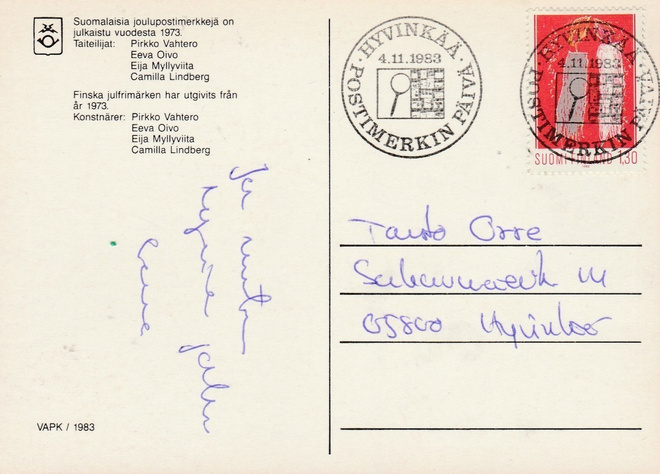 Suomalaisia joulupostimerkkejä on
julkaistu vuodesta 1973.
Taiteilijat: Pirkko Vahtero
Eeva Oivo
Eija Myllyviita
Camilla Lindberg
Finska julfrimärken har utgivits från
år 1973.
Konstnärer: Pirkko Vahtero
Eeva Oivo
Eija Myllyviita
Camilla Lindberg
· HYVINKÄÄ ·
4.11.1983
POSTIMERKIN PÄIVÄ
· HYVINKÄÄ ·
4.11.1983
POSTIMERKIN PÄIVÄ
SUOMI FINLAND 1,30
Orre
05800 Hyvinkää
VAPK / 1983